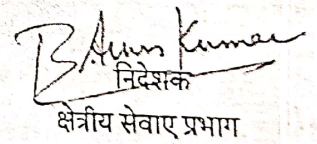 B Arun Kumar
निदेशक
क्षेत्रीय सेवाए प्रभाग